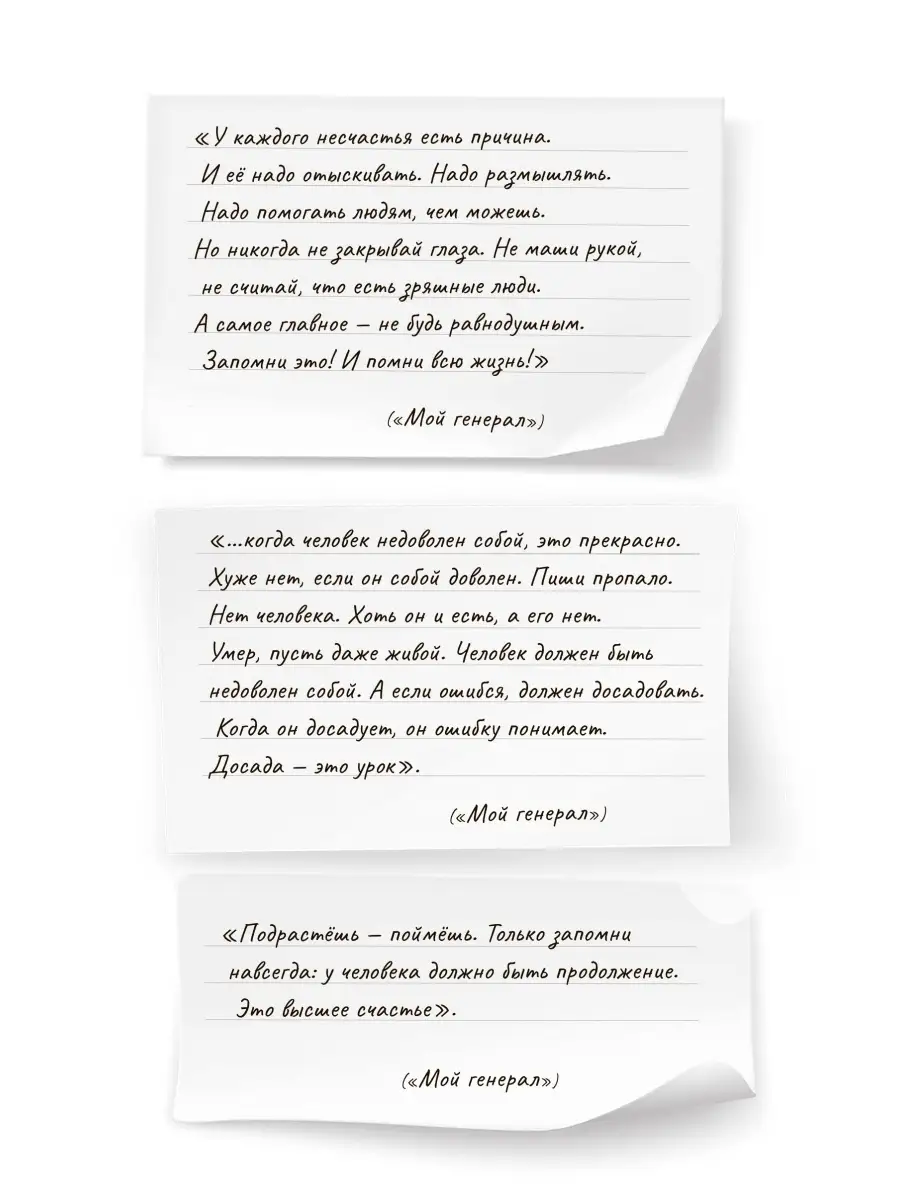 «У каждого несчастья есть причина.
И её надо отыскивать. Надо размышлять.
Надо помогать людям, чем можешь.
Но никогда не закрывай глаза. Не маши рукой,
не считай, что есть зряшные люди.
А самое главное – не будь равнодушным.
Запомни это! И помни всю жизнь!»
(«Мой генерал»)
«...когда человек недоволен собой, это прекрасно.
Хуже нет, если он собой доволен. Пиши пропало.
Нет человека. Хоть он и есть, а его нет.
Умер, пусть даже живой. Человек должен быть
недоволен собой. А если ошибся, должен досадовать.
Когда он досадует, он ошибку понимает.
Досада – это урок».
(«Мой генерал»)
«Подрастёшь – поймёшь. Только запомни
навсегда: у человека должно быть продолжение.
Это высшее счастье».
(«Мой генерал»)